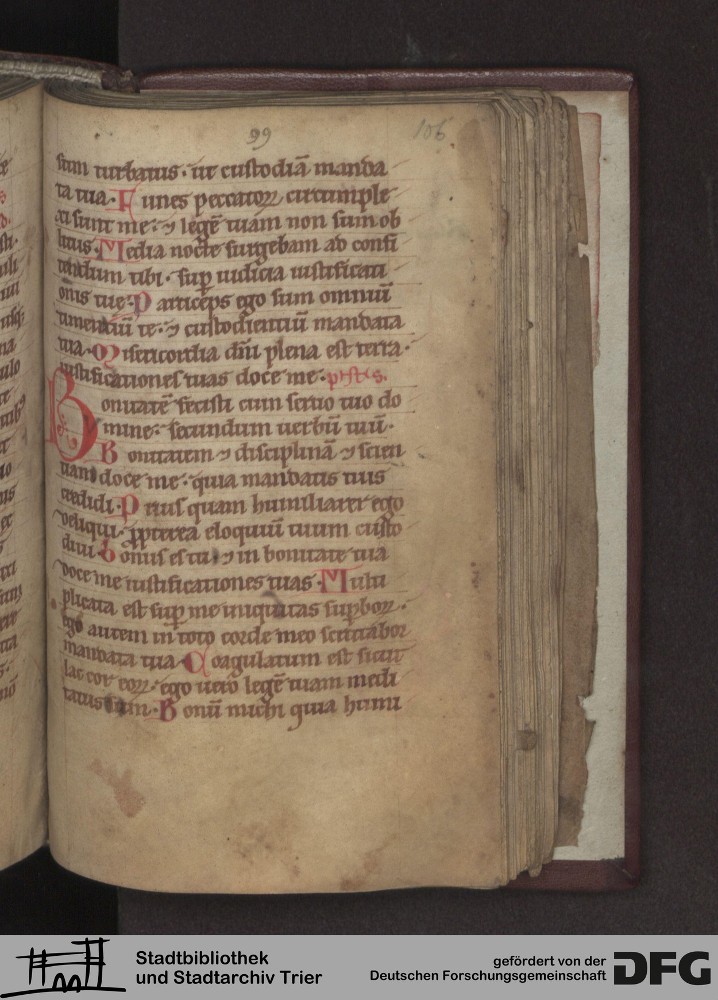 99
106
sum turbatus · ut custodiā manda
ta tua · Funes peccatoꝝ circumple
xi sunt me · ⁊ legē tuam non sum ob
litus · Media nocte surgebam ad confi
tendum tibi · sup iudicia iustificati
onis tue · Particeps ego sum omniū
timentiū te · ⁊ custodientiū mandata
tua · Misericordia dn̄i plena est terra ·
iustificationes tuas doce me ·
Bonitatē fecisti cum seruo tuo do
mine · secundum uerbū tuū ·
Bonitatem ⁊ disciplinā ⁊ scien
tiam doce me · quia mandatis tuis
credidi · Prius quam humiliarer ego
deliqui · ꝓpterea eloquiū tuum custo
diui · Bonus es tu · ⁊ in bonitate tua
doce me iustificationes tuas · Multi
plicata est sup me iniquitas supboꝝ ·
ego autem in toto corde meo scrutabor
mandata tua · Coagulatum est sicut
lac cor eoꝝ · ego uero legē tuam medi
tatus sum · Bonū michi quia humi
Stadtbibliothek
und Stadtarchiv Trier
gefördert von der
Deutschen Forschungsgemeinschaft
DFG